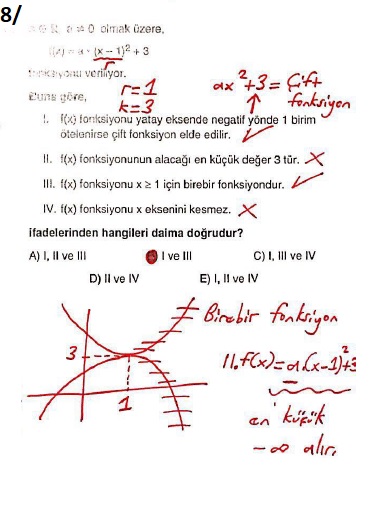 8/
a ∈ R, a ≠ 0 olmak üzere,
f(x) = a · (x − 1)² + 3
r
fonksiyonu veriliyor.
r=1
k=3
ax²+3 = Çift
fonksiyon
Buna göre,
I. f(x) fonksiyonu yatay eksende negatif yönde 1 birim
ötelenirse çift fonksiyon elde edilir.
II. f(x) fonksiyonunun alacağı en küçük değer 3 tür.
III. f(x) fonksiyonu x ≥ 1 için birebir fonksiyondur.
IV. f(x) fonksiyonu x eksenini kesmez.
ifadelerinden hangileri daima doğrudur?
A) I, II ve III I ve III C) I, III ve IV
D) II ve IV E) I, II ve IV
Birebir fonksiyon
3
1
II. f(x) = a(x-1)²+3
en küçük
-∞ alır.